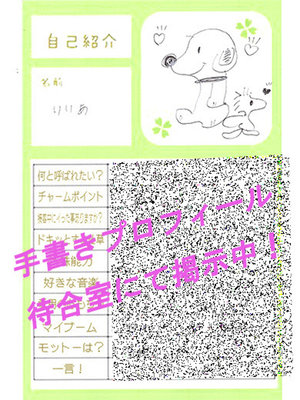 自己紹介
りりあ
何と呼ばれたい?
チャームポイント
ドキッとす
好きな音楽
マイブーム
モットーは?
一言!
手書きプロフィール
待合室にて掲示中!